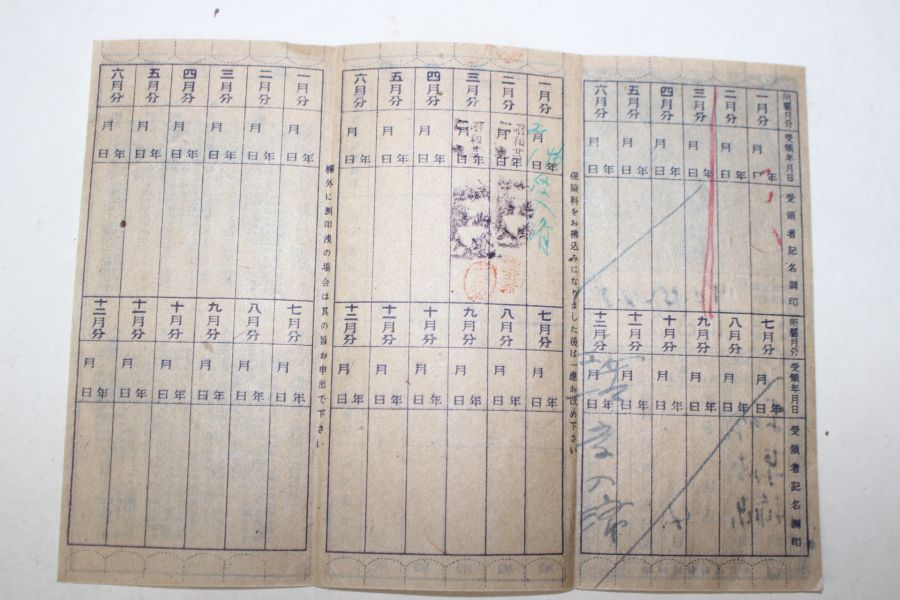 所屬月分 受領年月日 受領者記名調印
一月分 年 月 日
二月分 年 月 日
三月分 年 月 日
四月分 年 月 日
五月分 年 月 日
六月分 年 月 日
所屬月分 受領年月日 受領者記名調印
七月分 年 月 日
八月分 年 月 日
九月分 年 月 日
十月分 年 月 日
十一月分 年 月 日
十二月分 年 月 日
保險料をお拂込みになりました後は一應お改め下さい
一月分 年 月 日
二月分 昭和廿 年 月 日
三月分 昭和廿 年 月 日
四月分 年 月 日
五月分 年 月 日
六月分 年 月 日
七月分 年 月 日
八月分 年 月 日
九月分 年 月 日
十月分 年 月 日
十一月分 年 月 日
十二月分 年 月 日
欄外に割印洩の場合は其の旨お申出で下さい
一月分 年 月 日
二月分 年 月 日
三月分 年 月 日
四月分 年 月 日
五月分 年 月 日
六月分 年 月 日
七月分 年 月 日
八月分 年 月 日
九月分 年 月 日
十月分 年 月 日
十一月分 年 月 日
十二月分 年 月 日